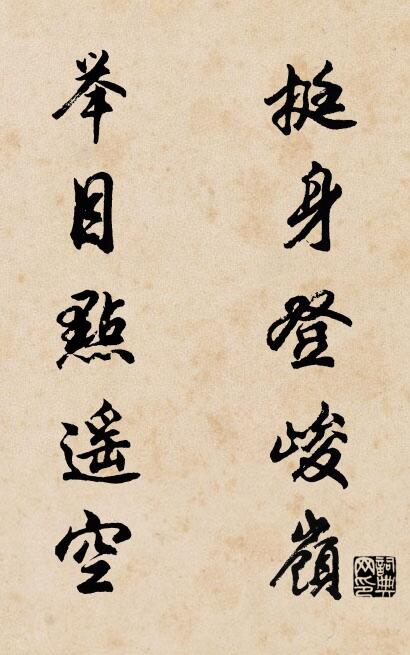 挺身登峻嶺
举目點遥空
詞典网印